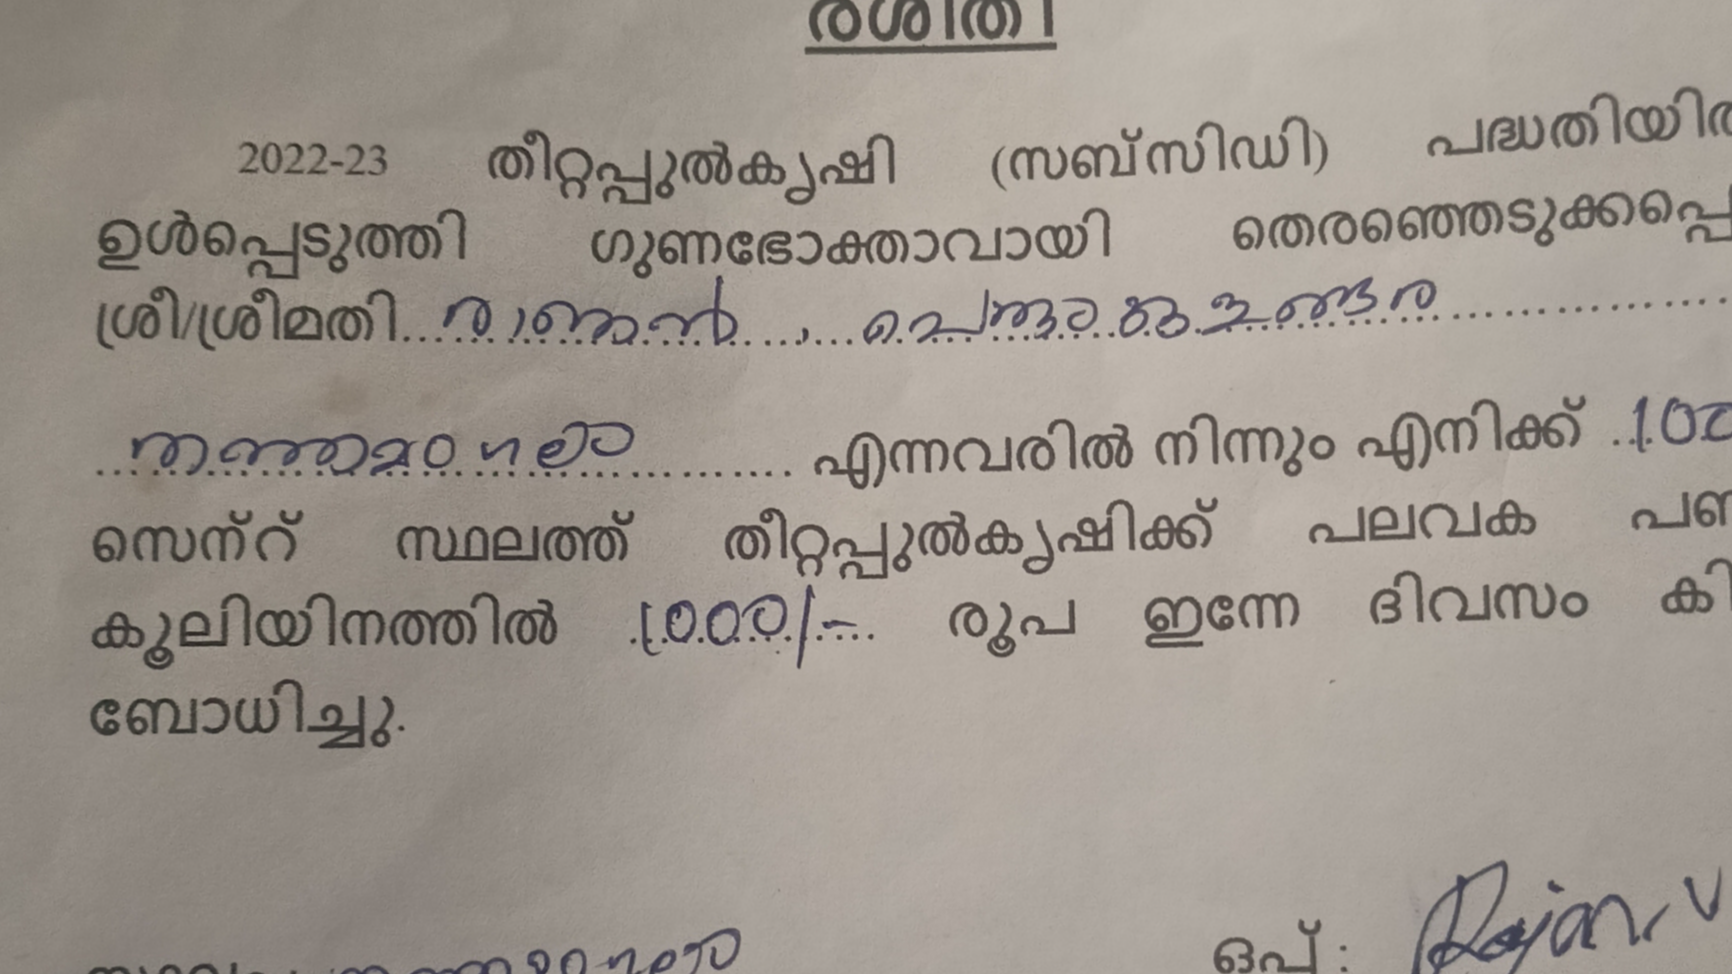 രശീതി
2022-23 തീറ്റപ്പുൽകൃഷി (സബ്സിഡി) പദ്ധതിയിൽ
ഉൾപ്പെടുത്തി ഗുണഭോക്താവായി തെരഞ്ഞെടുക്കപ്പെ
ശ്രീ/ശ്രീമതി രാജൻ
തത്തമംഗലം എന്നവരിൽ നിന്നും എനിക്ക് 100
സെന്റ് സ്ഥലത്ത് തീറ്റപ്പുൽകൃഷിക്ക് പലവക പണ
കൂലിയിനത്തിൽ 1000/- രൂപ ഇന്നേ ദിവസം കി
ബോധിച്ചു.
ഒപ്പ് : Rajan. V